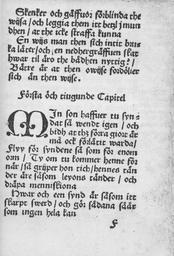 Skenker och gåffuor förblinda the
wiisa / och leggia them itt betzl j mun
dhen / at the icke straffa kunna
En wiis man then sich intit brus
ka låter / och / en nedhergräffuen skat
hwar til äro the bådhen nyttig? /
Bätre är at then owise fördölier
sich än then wise.
Första och tiugunde Capitel
MIn son haffuer tu syn
dat så wendt igen / och
bidh at thz förra giort är
må ock förlatit warda /
Flyy för syndene så som för enom
orm / Ty om tu kommer henne för
när / så griper hon tich / hennes tän
der äre såsom leyons tänder / och
dräpa menniskiona
Hwar och een synd är såsom itt
skarpt swerd / och gör sådana såår
som ingen hela kan
F